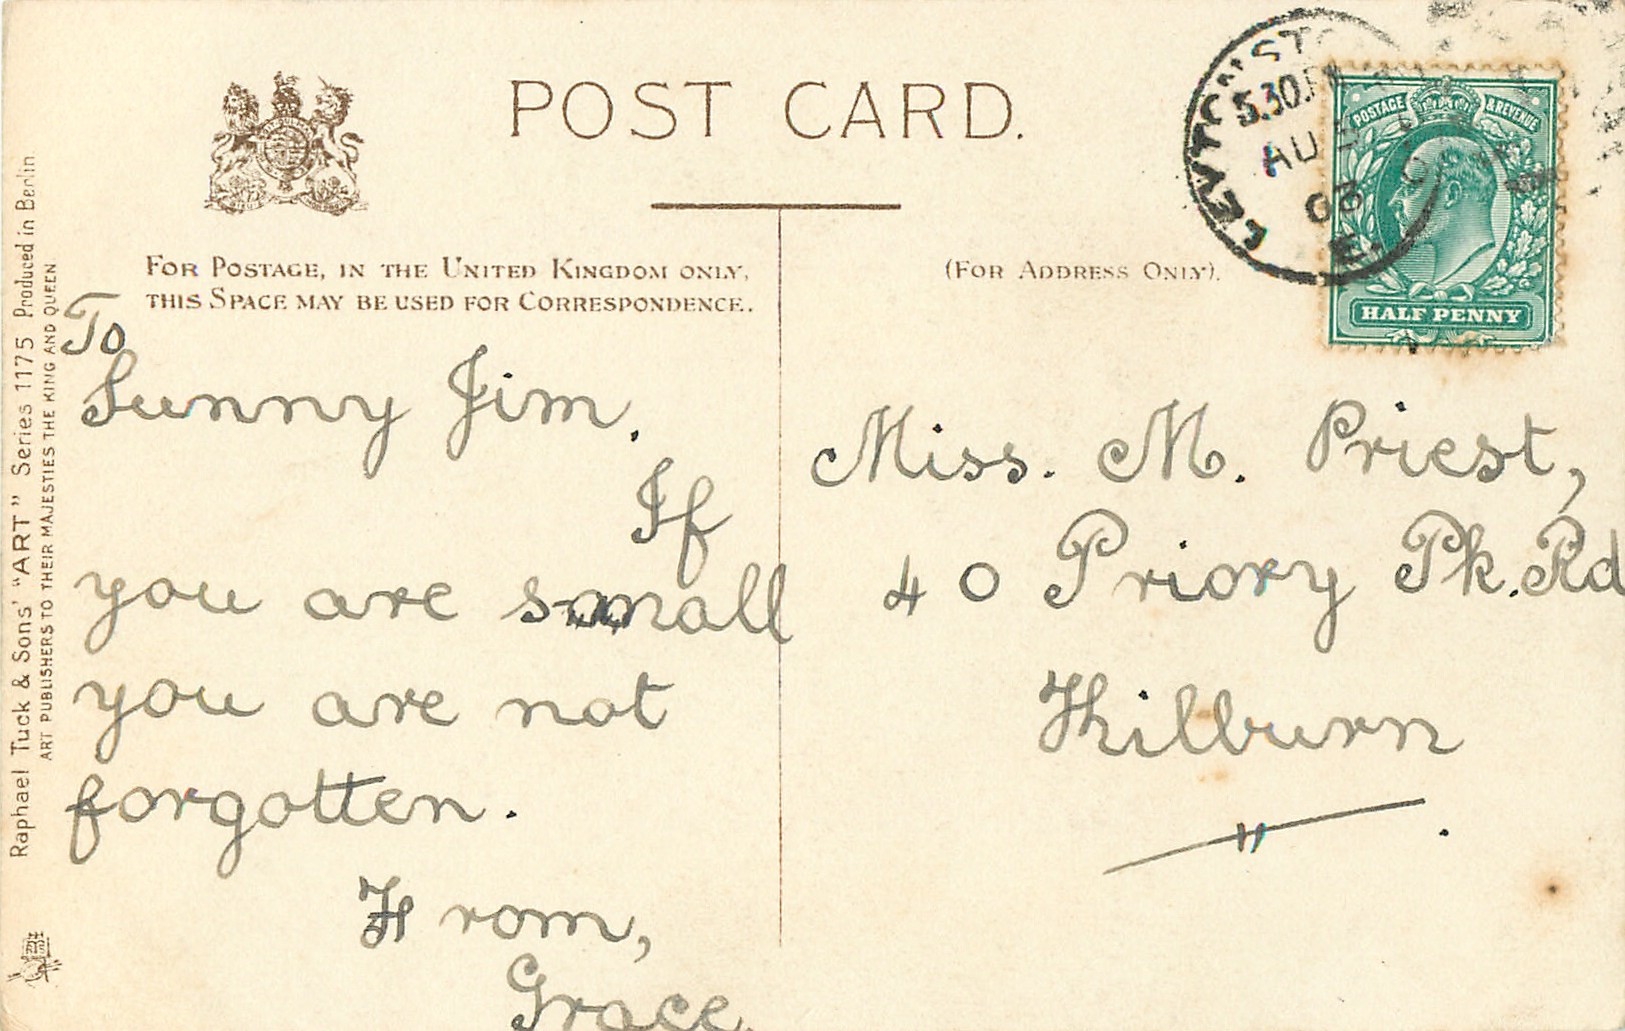 POST CARD.
FOR POSTAGE, IN THE UNITED KINGDOM ONLY,
THIS SPACE MAY BE USED FOR CORRESPONDENCE.
(FOR ADDRESS ONLY).
LEYTONST
5.30.PM
AU
E.
POSTAGE & REVENUE
HALF PENNY
Raphael Tuck & Sons' "ART" Series 1175 Produced in Berlin
ART PUBLISHERS TO THEIR MAJESTIES THE KING AND QUEEN
To
Sunny Jim.
If
you are small
you are not
forgotten.
From,
Grace.
Miss. M. Priest,
40 Priory Pk. Rd
Kilburn